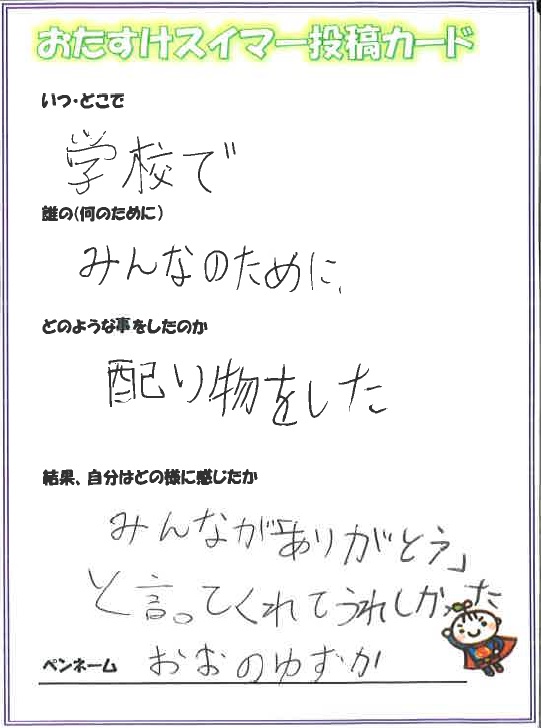 おたすけスイマー投稿カード
いつ・どこで
学校で
誰の(何のために)
みんなのために、
どのような事をしたのか
配り物をした
結果、自分はどの様に感じたか
みんなが「ありがとう」
と言ってくれてうれしかった
ペンネーム おおのゆずか